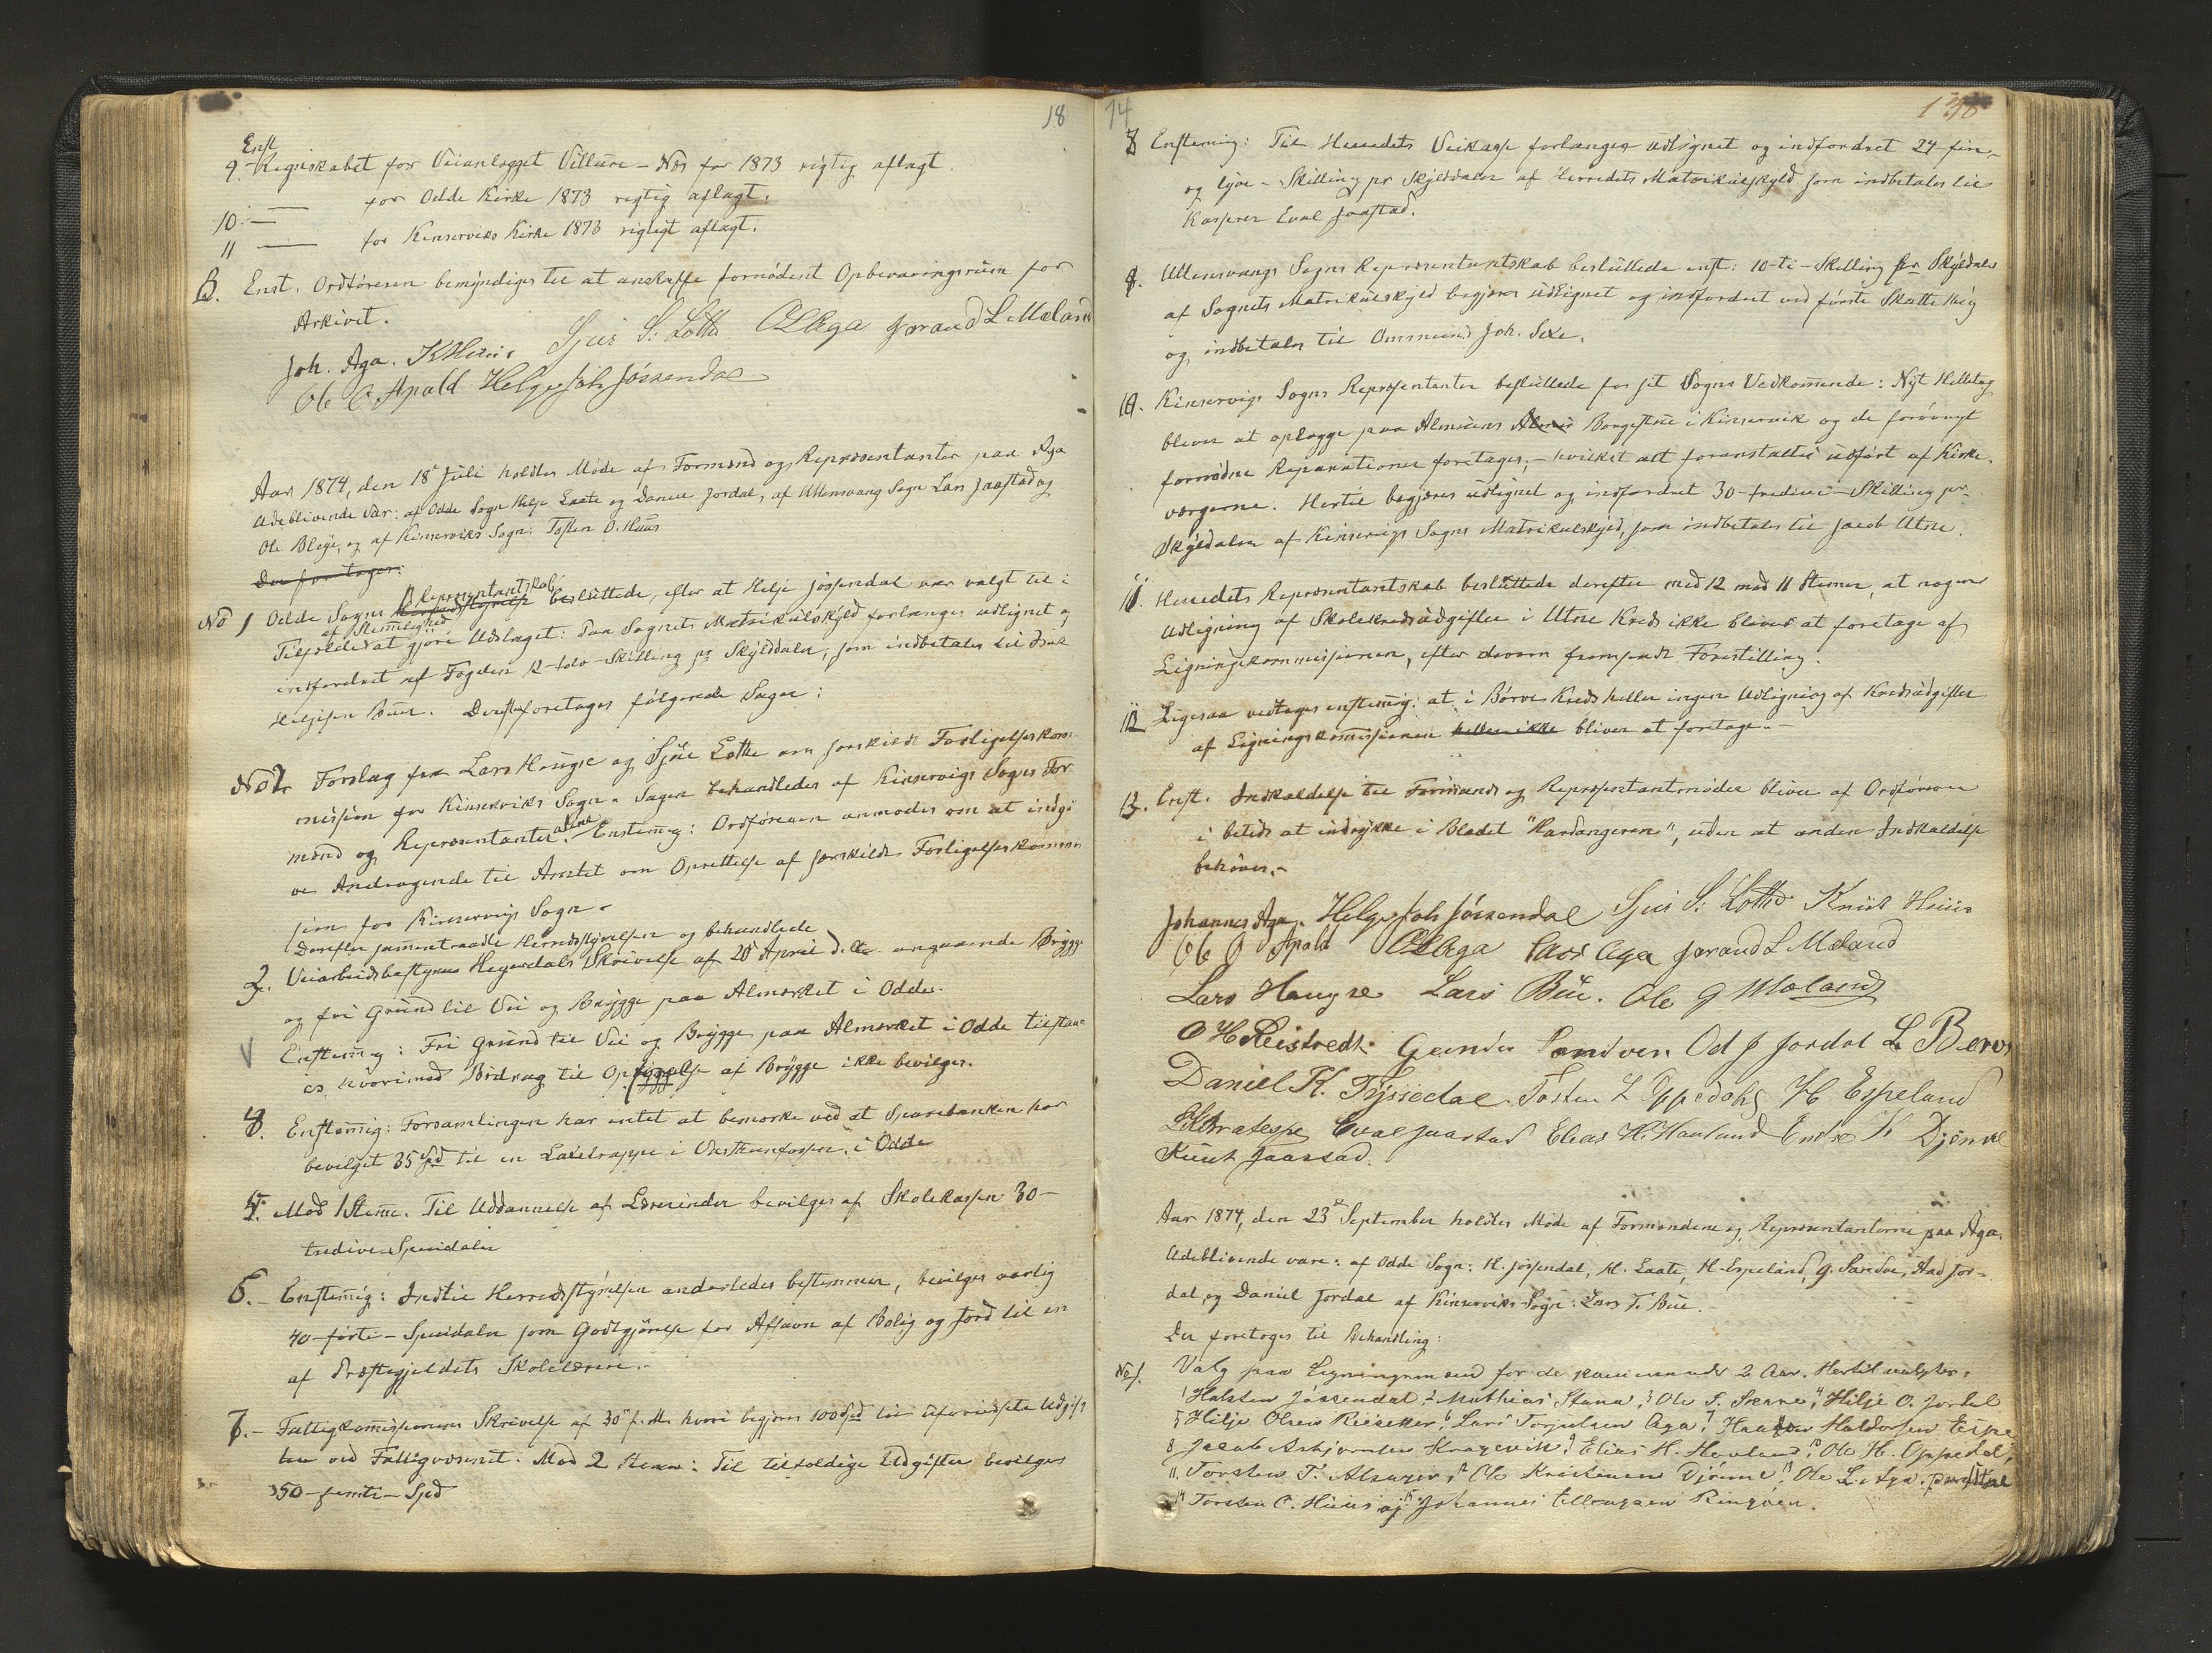 18
Enst
9 - Regnskabet for Veianlægget Villure - Næs for 1873 rigtig aflagt
10 — for Odde Kirke 1873 rigtig aflagt.
11 — for Kinserviks Kirke 1873 rigtigt aflagt.
B. Enst. Ordføreren bemyndiges til at anskaffe fornødent Opbevaringsrum for
Arkivet.
Joh. Aga. K Huus Sjur S. Lothe O L Aga Jørand L Mæland
Ole O Apold Helge Joh Jössendal
Aar 1874, den 18de Juli holdtes Møde af Formænd og Repræsentanter paa Aga
Udeblivende var: af Odde Sogn Helje Laate og Daniel Jordal, af Ullensvang Sogn Lars Jaastad og
Ole Bleye, og af Kinserviks Sogn: Tosten O. Huus
Der foretoges:
No 1 Odde Sogns Repræsentantskab besluttede, efter at Helje Jössendal var valgt til i
af Stemlighed
Tilfælde at gjøre Udslaget: Paa Sognets Matrikulskyld forlanges udlignet og
indfordret af Fogden 12-tolv-Skilling pr Skylddaler, som indbetales til
Heljesen Bue. Derefter foretoges følgende Sager:
No 2. Forslag fra Lars Haugse og Sjur Lothe om særskildt Forligelseskom-
mission for Kinserviks Sogn. Sagen behandledes af Kinservigs Sogns For-
mænd og Repræsentanter alene. Enstemig: Ordføreren anmodes om at indgi
ve Andragende til Amtet om Oprettelse af særskildt Forligelseskommis
sion for Kinservigs Sogn.
Derefter sammentraadte Herredsstyrelsen og behandlede
3. Veiarbeidsbestyrer Hegerdals Skrivelse af 20de April d. A. angaaende Brygge
og fri Grund til Vei og Brygge paa Almærket i Odde.
V Enstemig: Fri Grund til Vei og Brygge paa Almærket i Odde tilstaa-
es, hvorimod Bidrag til Opbyggelse af Brygge ikke bevilges.
4. Enstemig: Forsamlingen har intet at bemærke ved at Sparebanken har
bevilget 35 Spd til en Laxetrappe i i Odde
5. Mod 1 Stemme. Til Uddannelse af Lærerinder bevilges af Skolekassen 30-
tredive Speciedaler
6. - Enstemig: Indtil Herredsstyrelsen anderledes bestemmer, bevilges aarlig
40-förti-Speciedaler som Godtgjörelse for Afsavn af Bolig og Jord til en
af Præstegjeldets Skolelærere.
7. - Fattigkommissionens Skrivelse af 30te f. M. hvori begjæres 100 Spd til uforudseete Udgif-
ter ved Fattigvæsenet. Mod 2 Stemer: Til tilfældige Udgifter bevilges
50-femti-Spd
14
8 Enstemig: Til Herredets Veikasse forlanges udlignet og indfordret 24-fire-
og tyve-Skilling pr Skylddaler af Herredets Matrikulskyld som indbetales til
Kasserer Eval Jaastad.
9. Ullensvangs Sogns Repræsentantskab besluttede enst: 10-ti-Skilling pr Skylddaler
af Sognets Matrikulskyld begjæres udlignet og indfordret ved første Skattethig
og indbetales til Ommund Joh. Sexe.
10. Kinservigs Sogns Repræsentanter besluttede for sit Sogns Vedkommende: Nyt Helletag
bliver at oplægge paa Almuens Borgestue i Kinservik og de forøvrigt
fornødne Reparationer foretages, - hvilket alt foranstaltes udført af Kirke-
værgerne. Hertil begjæres udlignet og indfordret 30-tredive-Skilling pr
Skylddaler af Kinservigs Sogns Matrikulskyld, som indbetales til Jacob Utne.
11. Herredets Repræsentantskab besluttede derefter med 12 mod 11 Stemer, at nogen
Udligning af Skolekredsudgifter i Utne Kreds ikke bliver at foretage af
Ligningskommissionen, efter derom fremsendt Forestilling.
12 Ligesaa vedtoges enstemig: at i Børve Kreds heller ingen Udligning af Kredsudgifter
af Ligningskommissionen heller ikke bliver at foretage. -
13. Enst. Indkaldelse til Formands og Repræsentantmøder bliver af Ordføreren
i betids at indrykke i Bladet "Hardangeren", uden at anden Indkaldelse
behøves. -
Johannes Aga. Helge Joh Jössendal Sjur S. Lothe Knut Huus
Ole O Apold O L Aga Lars Aga Jørand L Mæland
Lars Haugse Lars Bue. Ole G Mæland
O H Reisæter Gunder Sandven Od J Jordal L Berve
Daniel K. Tyssedal Tosten L Oppedahl H Espeland
Eval Jaastad Elias H. Hauland Endre K Djönne
Knut Jaastad.
Aar 1874, den 23de September holdtes Møde af Formændene og Repræsentanterne paa Aga.
Udeblivende vare: af Odde Sogn: H. Jøssendal, H. Laate, H. Espeland, G. Sandve, Aad Jor-
dal, og Daniel Jordal af Kinserviks Sogn: Lars T. Bue.
Der foretoges til Behandling:
No 1. Valg paa Ligningsmænd for de kommende 2 Aar. Hertil valgtes:
1 Halsten Jössendal, 2 Mathias Stana, 3 Ole S. 4 Hilje O. Jordal
5 Hilje Olsen Reisetter, 6 Lars Torjulsen Aga, 7 Haaken Haldorsen Eispe
8 Jacob Asbjørnsen Kragevik, 9 Elias H. Hauland, 10 Ole H. Oppedal,
11 Torsten T. Alsager, 12 Ole Kristensen Djönne, 13 Ole L. Aga.
14 Torsten O. Huus og 15 Johannes Ellingsen Ringøen.